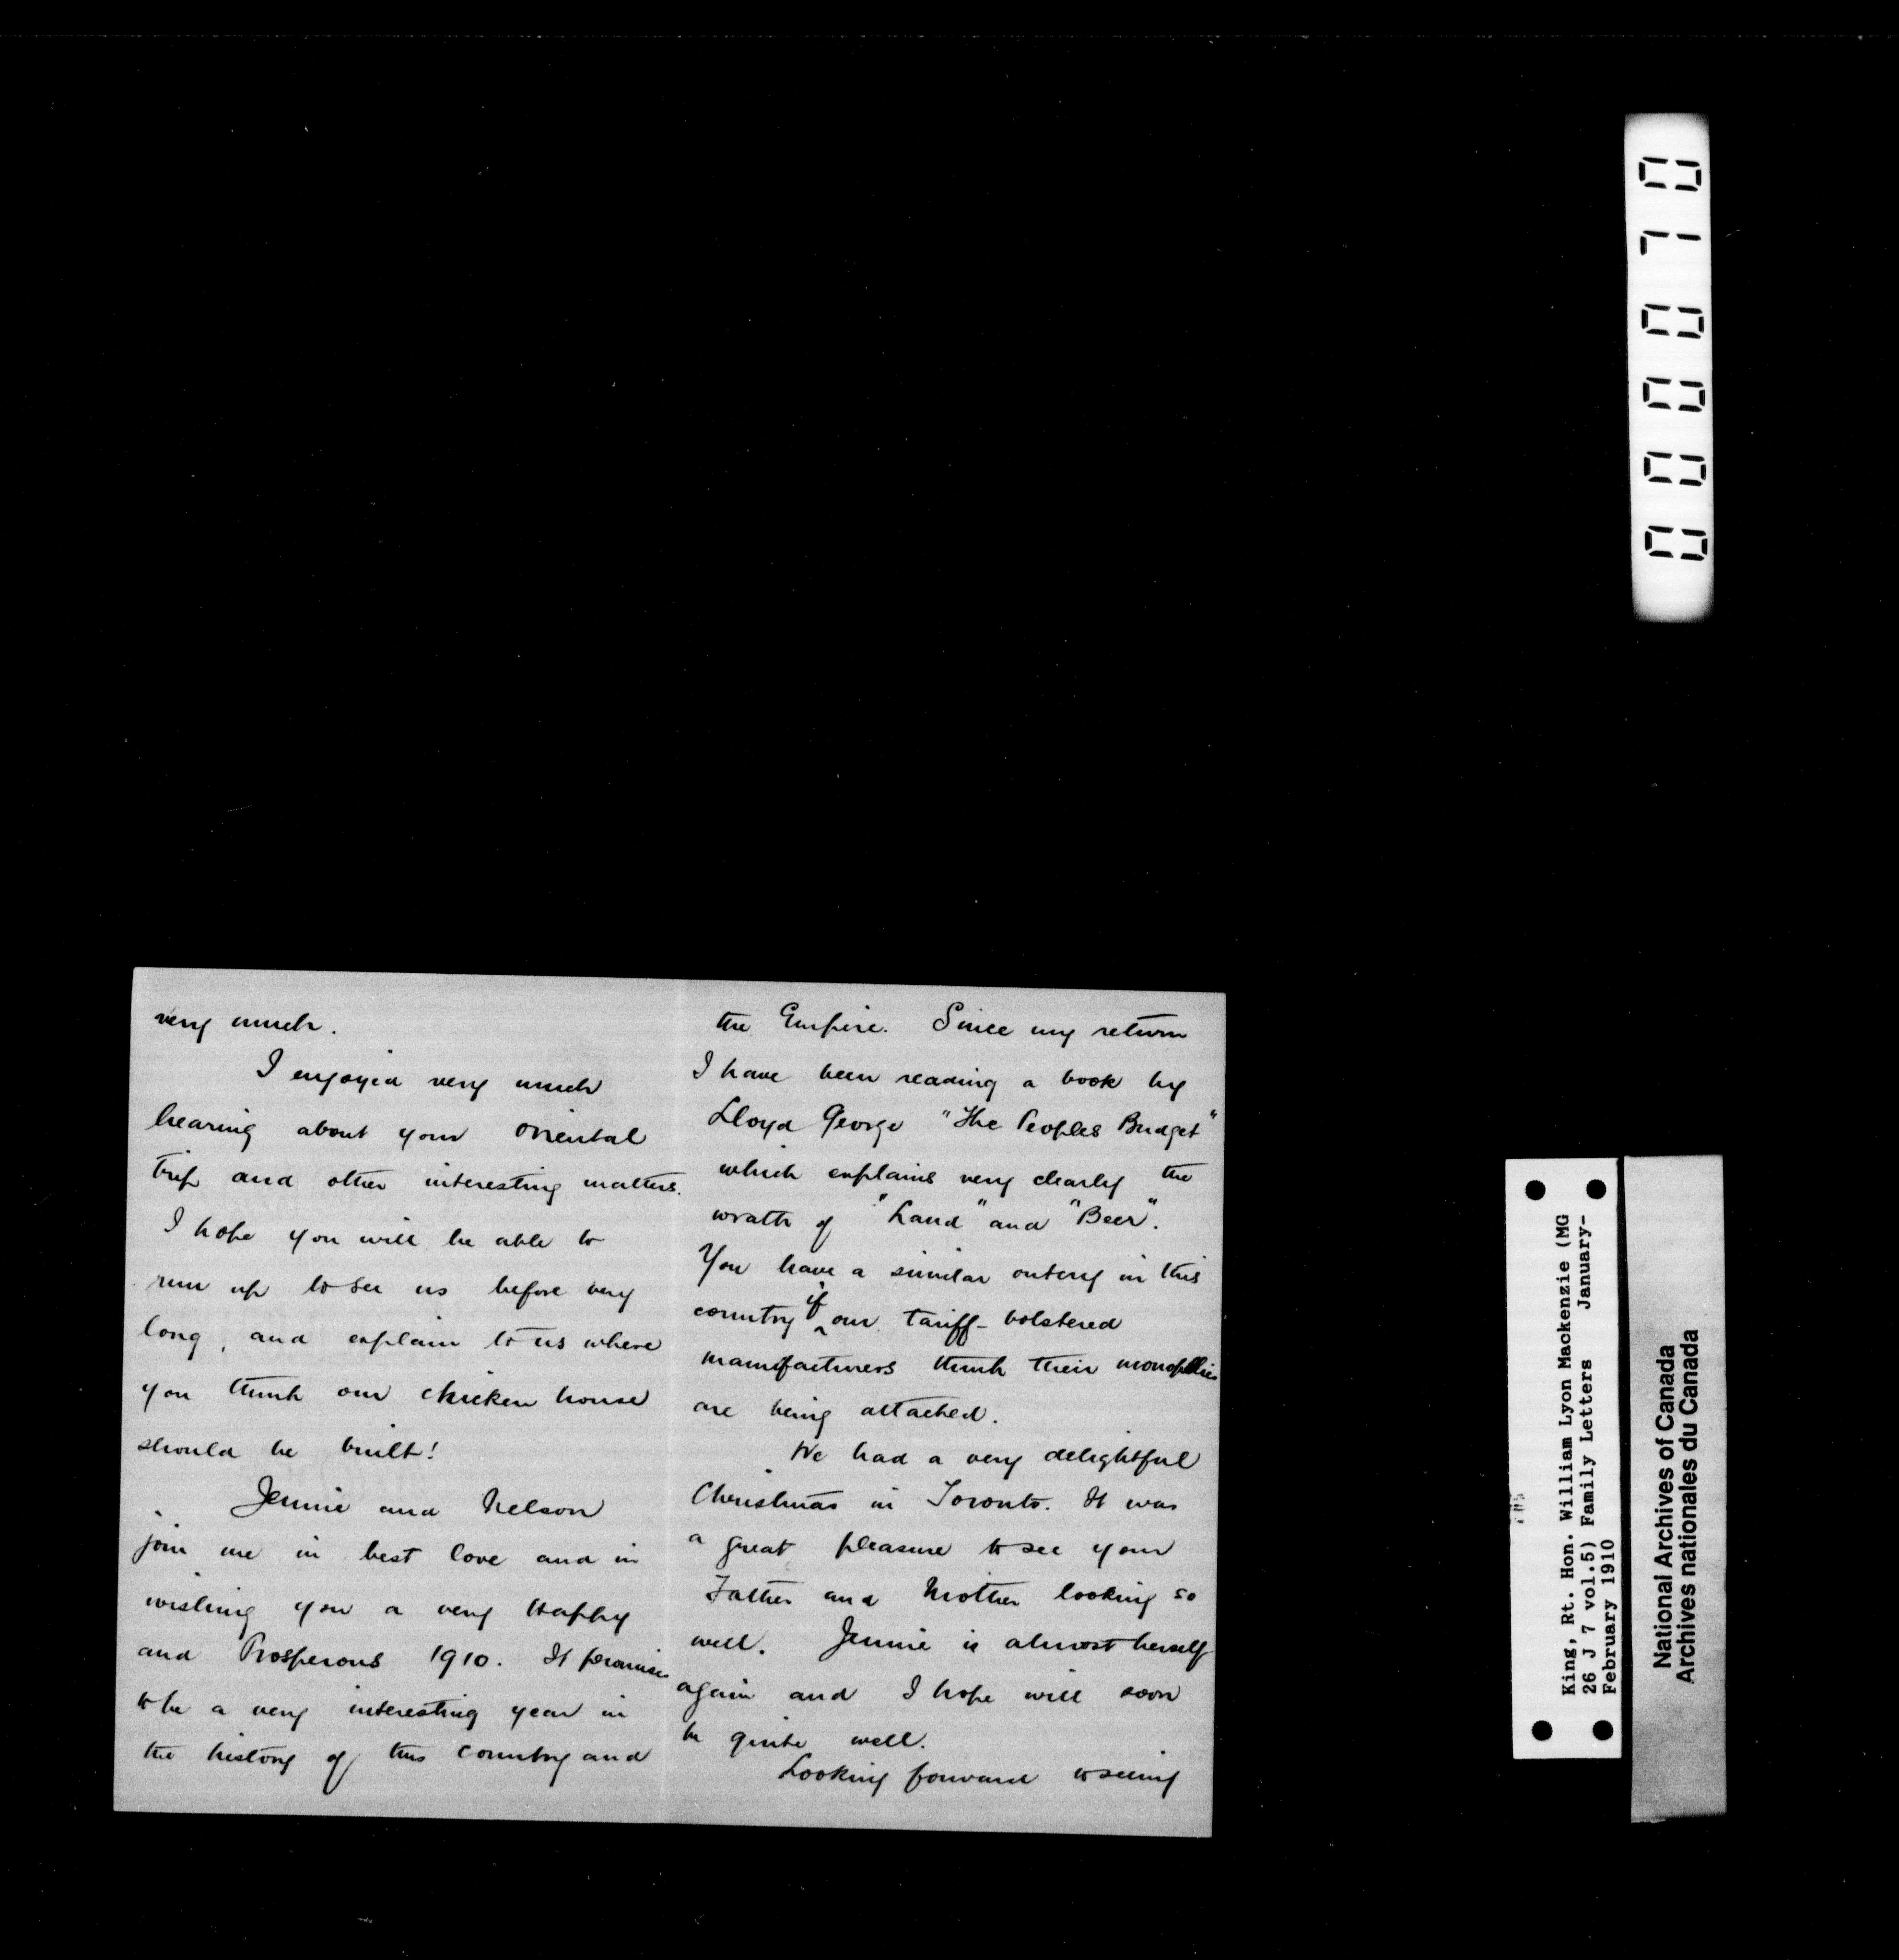 very much.
I enjoyed very much
hearing about your Oriental
trip and other interesting matters.
I hope you will be able to
run up to see us before very
long, and explain to us where
you think our chicken house
should be built!
Jennie and Nelson
join me in best love and in
wishing you a very Happy
and Prosperous 1910. It promises
to be a very interesting year in
the history of this country and
the Empire. Since my return
I have been reading a book by
Lloyd George "The Peoples Budget"
which explains very clearly the
wrath of "Land" and "Beer".
You have a similar outcry in this
country if our tariff-bolstered
manufacturers think their monopolies
are being attacked.
We had a very delightful
Christmas in Toronto. It was
a great pleasure to see your
Father and Mother looking so
well. Jennie is almost herself
again and I hope will soon
be quite well.
Looking forward to seeing
000070
King, Rt. Hon. William Lyon Mackenzie (MG
26 J 7 vol.5) Family Letters January-
February 1910
National Archives of Canada
Archives nationales du Canada